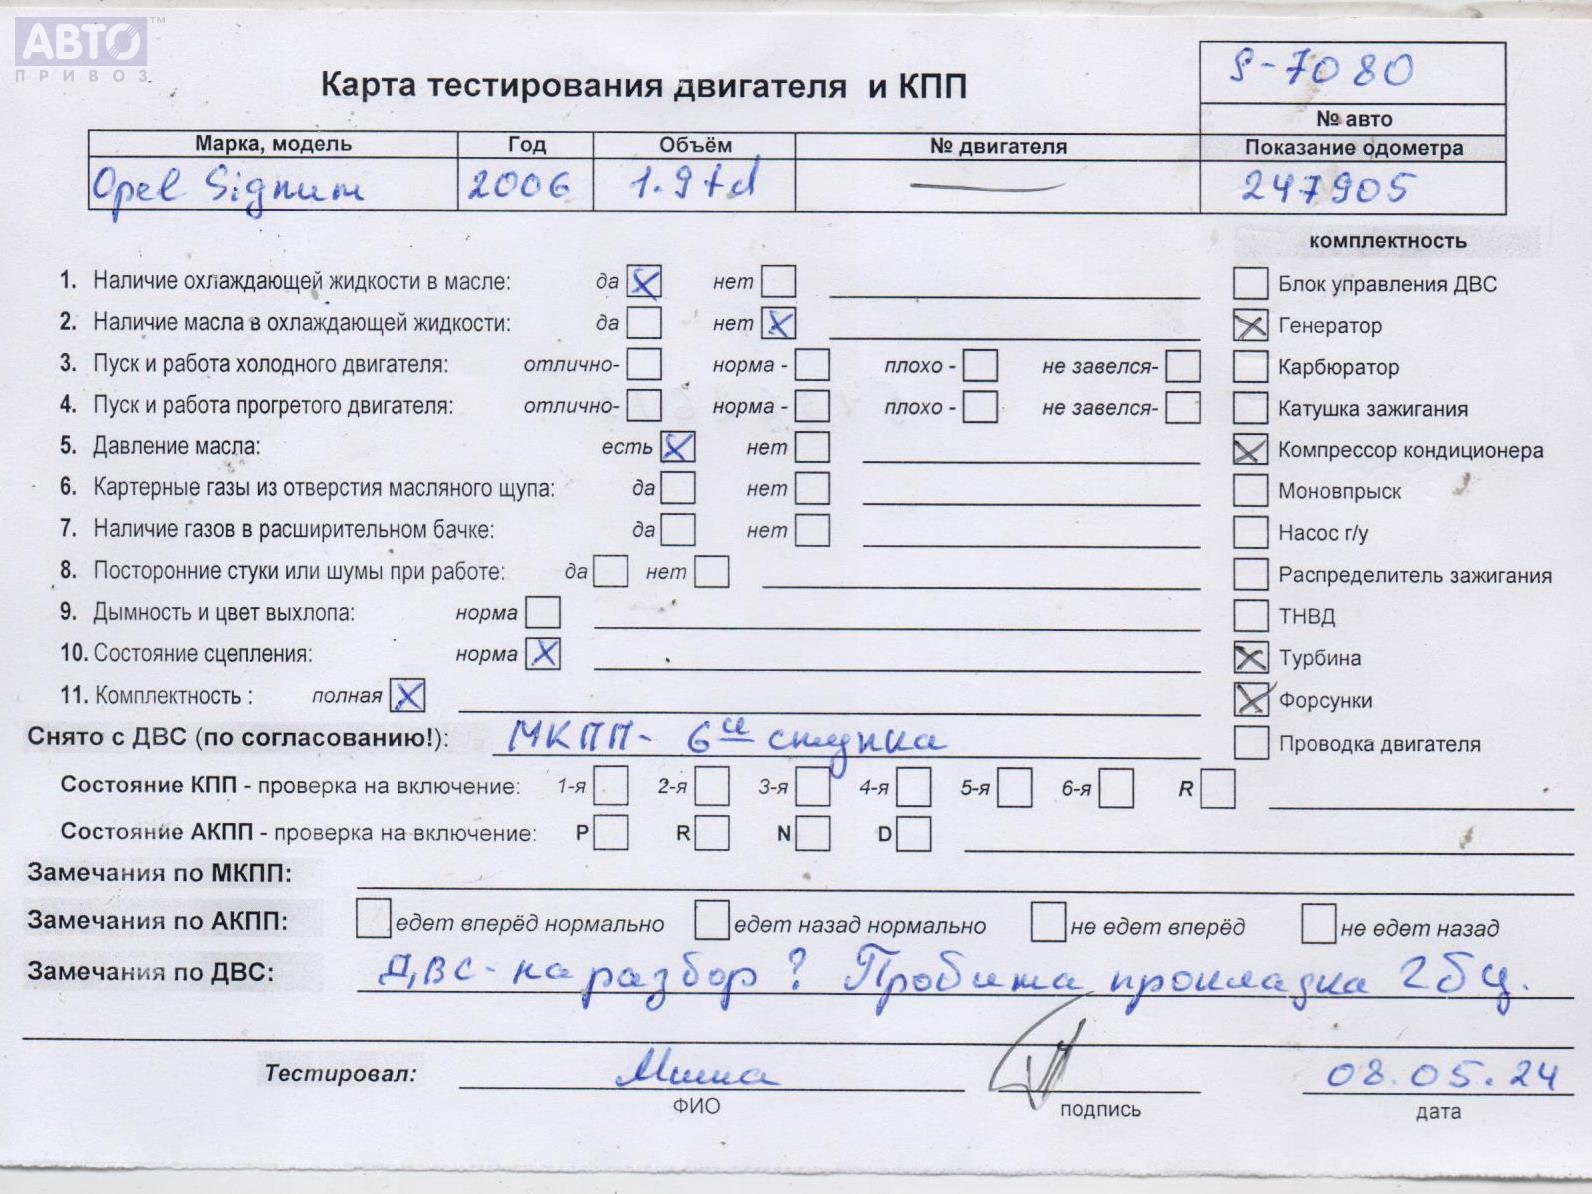 АВТО™
ПРИВОЗ
Карта тестирования двигателя и КПП
S-7080
№ авто
Марка, модель Год Объём № двигателя Показание одометра
Opel Signum 2006 1.9td — 247905
комплектность
1. Наличие охлаждающей жидкости в масле: да X нет Блок управления ДВС
2. Наличие масла в охлаждающей жидкости: да нет X X Генератор
3. Пуск и работа холодного двигателя: отлично- норма - плохо - не завелся- Карбюратор
4. Пуск и работа прогретого двигателя: отлично- норма - плохо - не завелся- Катушка зажигания
5. Давление масла: есть X нет X Компрессор кондиционера
6. Картерные газы из отверстия масляного щупа: да нет Моновпрыск
7. Наличие газов в расширительном бачке: да нет Насос г/у
8. Посторонние стуки или шумы при работе: да нет Распределитель зажигания
9. Дымность и цвет выхлопа: норма ТНВД
10. Состояние сцепления: норма X X Турбина
11. Комплектность : полная X X Форсунки
Снято с ДВС (по согласованию!): МКПП- 6и ступка Проводка двигателя
Состояние КПП - проверка на включение: 1-я 2-я 3-я 4-я 5-я 6-я R
Состояние АКПП - проверка на включение: P R N D
Замечания по МКПП:
Замечания по АКПП: едет вперёд нормально едет назад нормально не едет вперёд не едет назад
Замечания по ДВС: ДВС - на разбор? Пробита прокладка ГБЦ.
Тестировал: Миша 08.05.24
ФИО подпись дата